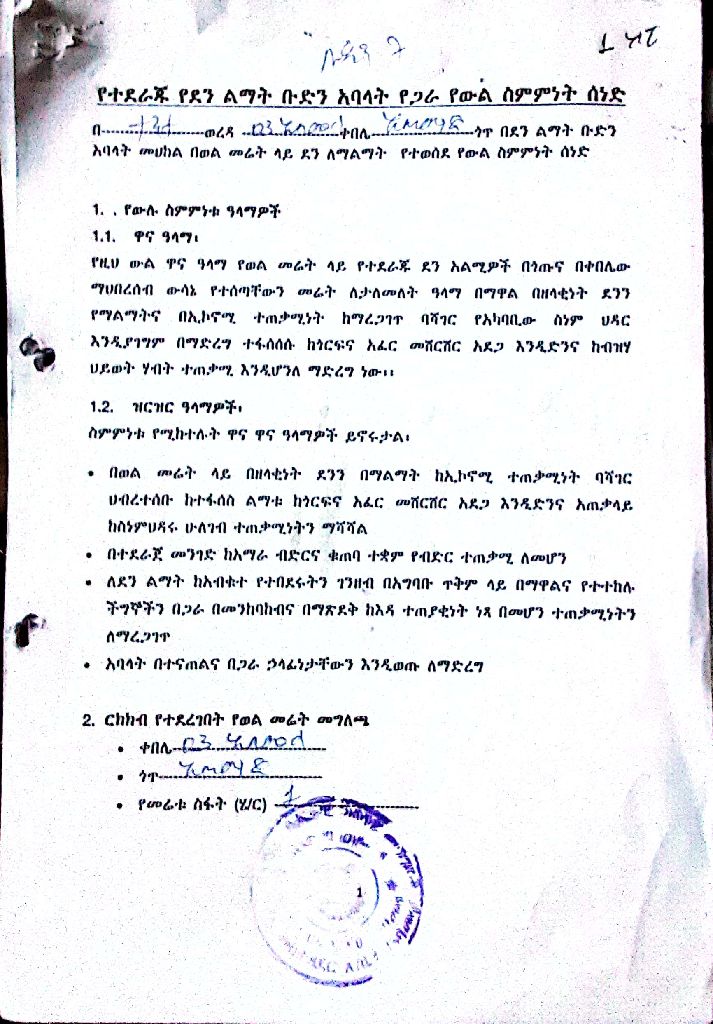 ቡድን 7
የተደራጁ የደን ልማት ቡድን አባላት የጋራ የውል ስምምነት ሰነድ
በ ወረዳ ቀበሌ ጎጥ በደን ልማት ቡድን
አባላት መሀከል በወል መሬት ላይ ደን ለማልማት የተወሰደ የውል ስምምነት ሰነድ
1. . የውሉ ስምምነቱ ዓላማዎች
1.1. ዋና ዓላማ፡
የዚህ ውል ዋና ዓላማ የወል መሬት ላይ የተደራጁ ደን አልሚዎች በጎጡና በቀበሌው
ማህበረሰብ ውሳኔ የተሰጣቸውን መሬት ለታለመለት ዓላማ በማዋል በዘላቂነት ደንን
የማልማትና በኢኮኖሚ ተጠቃሚነት ከማረጋገጥ ባሻገር የአካባቢው ስነም ህዳር
እንዲያገግም በማድረግ ተፋሰሰሱ ከጎርፍና አፈር መሸርሸር አደጋ እንዲድንና ከብዝሃ
ህይወት ሃብት ተጠቃሚ እንዲሆንለ ማድረግ ነው፡፡
1.2. ዝርዝር ዓላማዎች፡
ስምምነቱ የሚከተሉት ዋና ዋና ዓላማዎች ይኖሩታል፡
• በወል መሬት ላይ በዘላቂነት ደንን በማልማት ከኢኮኖሚ ተጠቃሚነት ባሻገር
ህብረተሰቡ ከተፋሰስ ልማቱ ከጎርፍና አፈር መሸርሸር አደጋ እንዲድንና አጠቃላይ
ከስነምህዳሩ ሁለገብ ተጠቃሚነትን ማሻሻል
• በተደራጀ መንገድ ከአማራ ብድርና ቁጠባ ተቋም የብድር ተጠቃሚ ለመሆን
• ለደን ልማት ከአብቁተ የተበደሩትን ገንዘብ በአግባቡ ጥቅም ላይ በማዋልና የተተከሉ
ችግኞችን በጋራ በመንከባከብና በማጽደቅ ከእዳ ተጠያቂነት ነጻ በመሆን ተጠቃሚነትን
ለማረጋገጥ
• አባላት በተናጠልና በጋራ ኃላፊነታቸውን እንዲወጡ ለማድረግ
2. ርክክብ የተደረገበት የወል መሬት መግለጫ
• ቀበሌ
• ጎጥ
• የመሬቱ ስፋት (ሄ/ር) 1
1